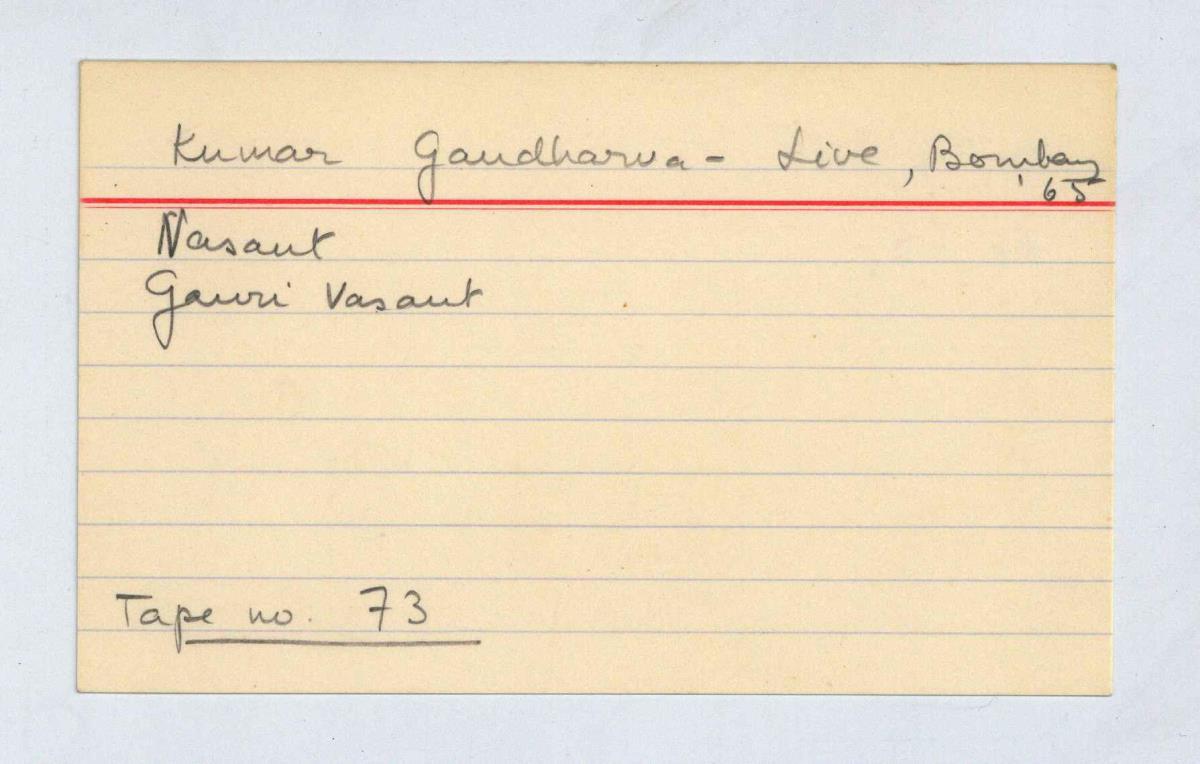 Kumar Gandharva - Live, Bombay
'65
Vasant
Gauri Vasant
Tape no. 73